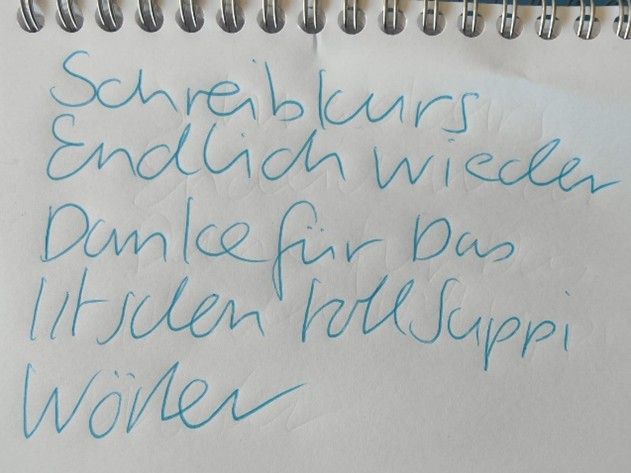 Schreibkurs
Endlich wieder
Danke für Das
toll Suppi